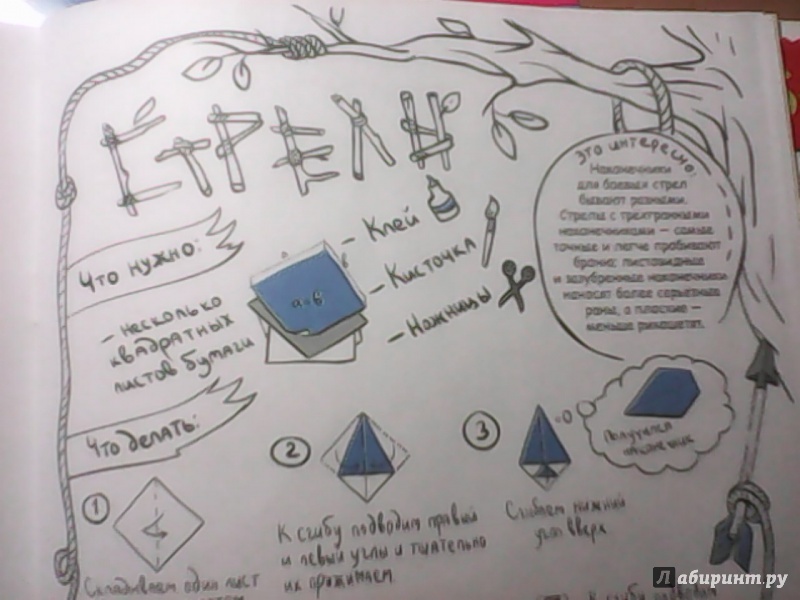 Стрелы
Это интересно:
Наконечники
для боевых стрел
бывают разными.
Стрелы с трехгранными
наконечниками — самые
точные и легче пробивают
броню; листовидные
и зазубренные наконечники
наносят более серьезные
раны, а плоские —
меньше рикошетят.
Что нужно:
– несколько
квадратных
листов бумаги
а=в
– Клей
– Кисточка
– Ножницы
Что делать:
1
Складываем один лист
2
К сгибу подводим правый
и левый углы и тщательно
их прижимаем.
3
Сгибаем нижний
угол вверх
Получился
К сгибу подводим
Лабиринт.ру